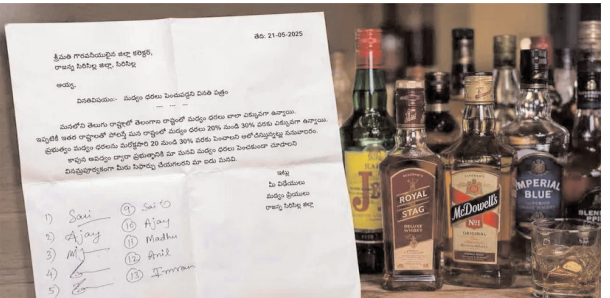 తేది: 21-05-2025
శ్రీమతి గౌరవనీయులైన జిల్లా కలెక్టర్,
రాజన్న సిరిసిల్ల జిల్లా, సిరిసిల్ల
అయ్య,
వినతివిషయం:- మద్యం ధరలు పెంచవద్దని వినతి పత్రం
మనలోని తెలుగు రాష్ట్రాలలో తెలంగాణ రాష్ట్రంలో మద్యం ధరలు చాలా ఎక్కువగా ఉన్నాయి.
ఇప్పటికే ఇతర రాష్ట్రాలతో పోలిస్తే మన రాష్ట్రంలో మద్యం ధరలు 20% నుండి 30% వరకు ఎక్కువగా ఉన్నాయి.
ప్రభుత్వం మద్యం ధరలను మరోక్కసారి 20 నుండి 30% వరకు పెంచాలని ఆలోచిస్తున్నట్లు సమాచారం.
కావున ఇవద్యం ద్వారా ప్రభుత్వానికి మా మనవి మద్యం ధరలు పెంచకుండా చూడాలని
వినమ్రపూర్వకంగా మీకు సిఫార్సు చేయగలరని మా ఐదు మనవి.
ఇట్లు
మీ విధేయులు
మద్యం ప్రియులు
రాజన్న సిరిసిల్ల జిల్లా
1) Sai
2) Ajay
3)
4)
5)
9) Sai
10) Ajay
11) Madhu
12) Anil
13) Imran
J&B
RARE
ROYAL
STAG
DELUXE WHISKY
McDowell's
No1
ORIGINAL
IMPERIAL
BLUE
BLENDERS